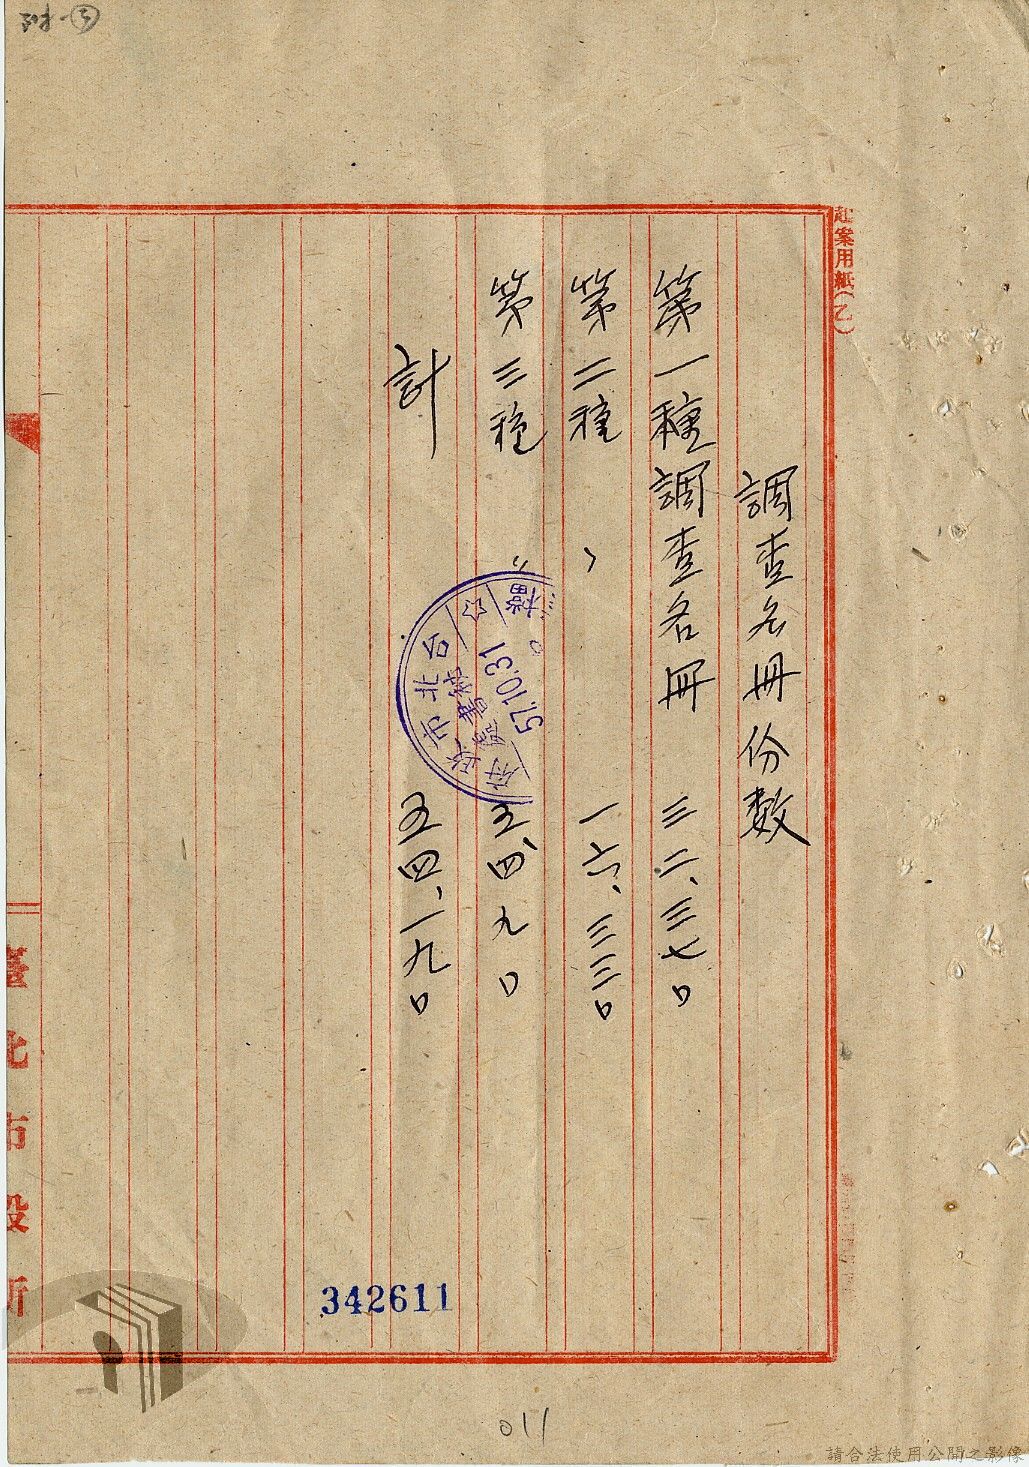 附-③
起案用紙(乙)
調查名冊份數
第一種調查名冊 三二、三七〇
第二種 〃 一六、三三〇
第三種 〃 五、四九〇
計 五四、一九〇
台北市政府
57.10.31
檔
342611
011
請合法使用公開之影像